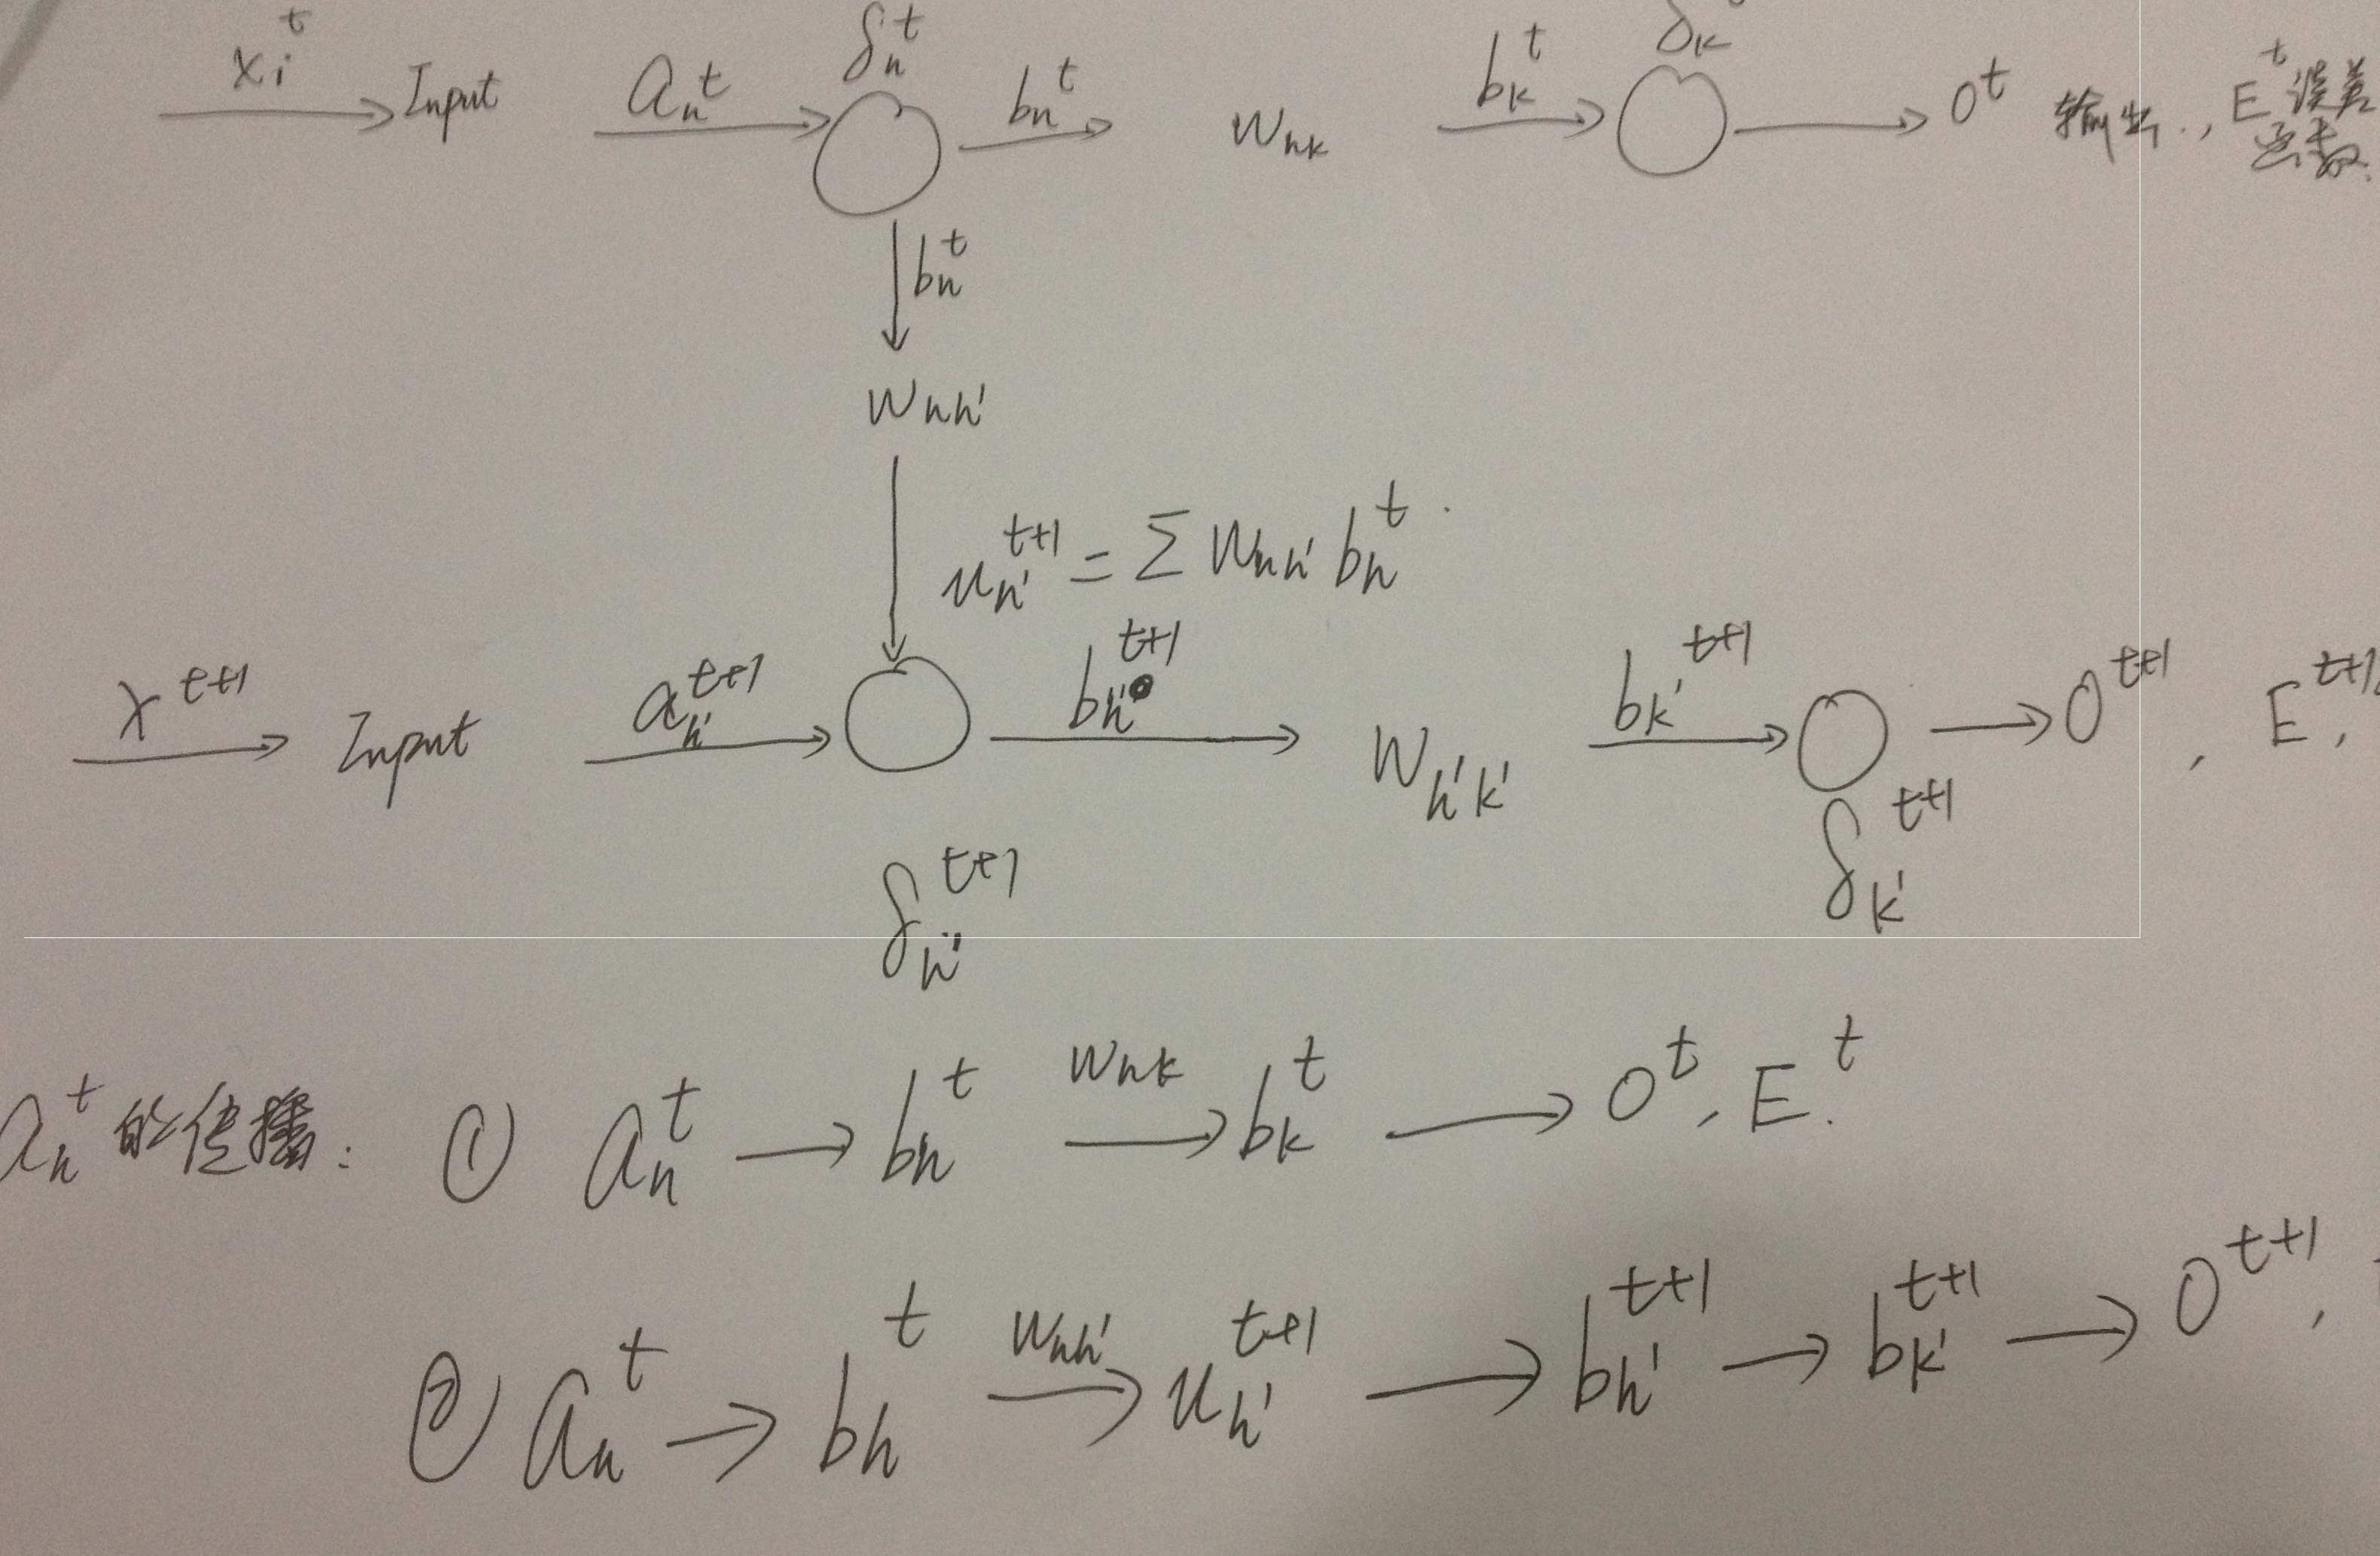 x_i^t Input a_h^t δ_h^t b_h^t w_hk b_k^t δ_k O^t 输出., E^t 误差
函数.
b_h^t
w_hh'
u_h'^{t+1} = Σ w_hh' b_h^t.
x^{t+1} Input a_h'^{t+1} b_h'^{t+1} w_h'k' b_k'^{t+1} O^{t+1}, E^{t+1},
δ_h'^{t+1} δ_k'^{t+1}
a_h^t 的传播: ① a_h^t → b_h^t w_hk → b_k^t → O^t, E^t.
② a_h^t → b_h^t w_hh' → u_h'^{t+1} → b_h'^{t+1} → b_k'^{t+1} → O^{t+1},